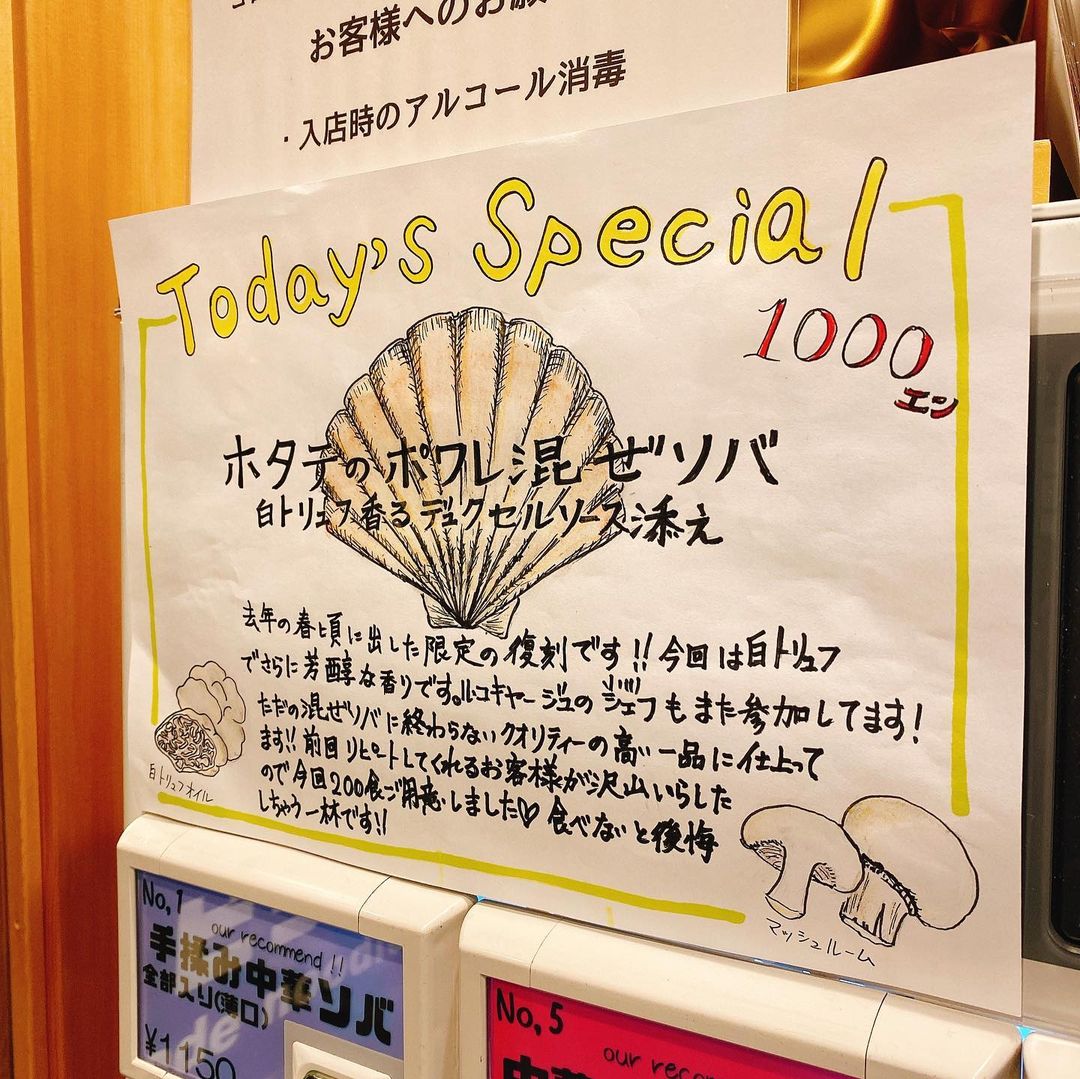 お客様へのお願
・入店時のアルコール消毒
Today's Special
1000
エン
ホタテのポワレ混ぜソバ
白トリュフ香るデュクセルソース添え
去年の春と頃に出した限定の復刻です!!今回は白トリュフ
でさらに芳醇な香りです。ルコキャージュのシェフもまた参加してます!
ただの混ぜソバに終わらないクオリティーの高い一品に仕上って
ます!!前回リピートしてくれるお客様が沢山いらした
ので今回200食ご用意しました♡食べないと後悔
しちゃう一杯です!!
白トリュフオイル
マッシュルーム
No,1
our recommend !!
手揉み中華ソバ
全部入り(薄口)
¥1150
No,5
our reco